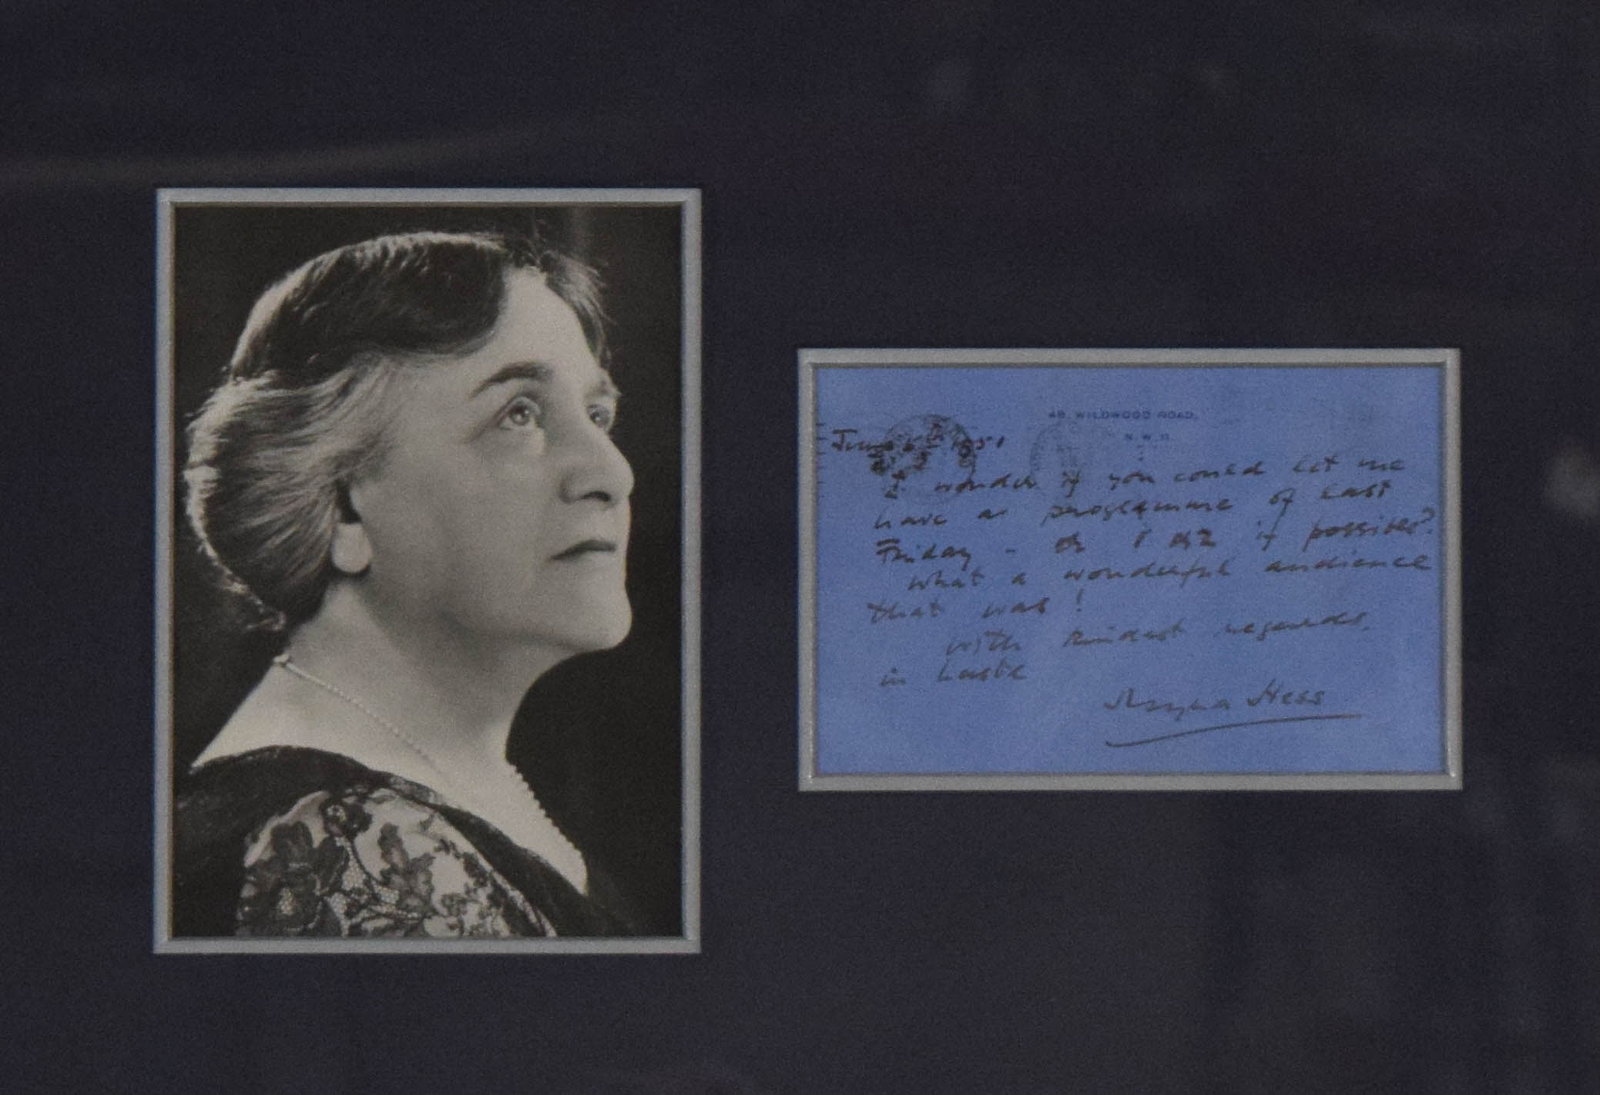 48, WILDWOOD ROAD,
N.W.11.
June 1951
I wonder if you could let me
have a programme of last
Friday - or 1 or 2 if possible?
What a wonderful audience
that was!
with kindest regards,
in haste
Myra Hess